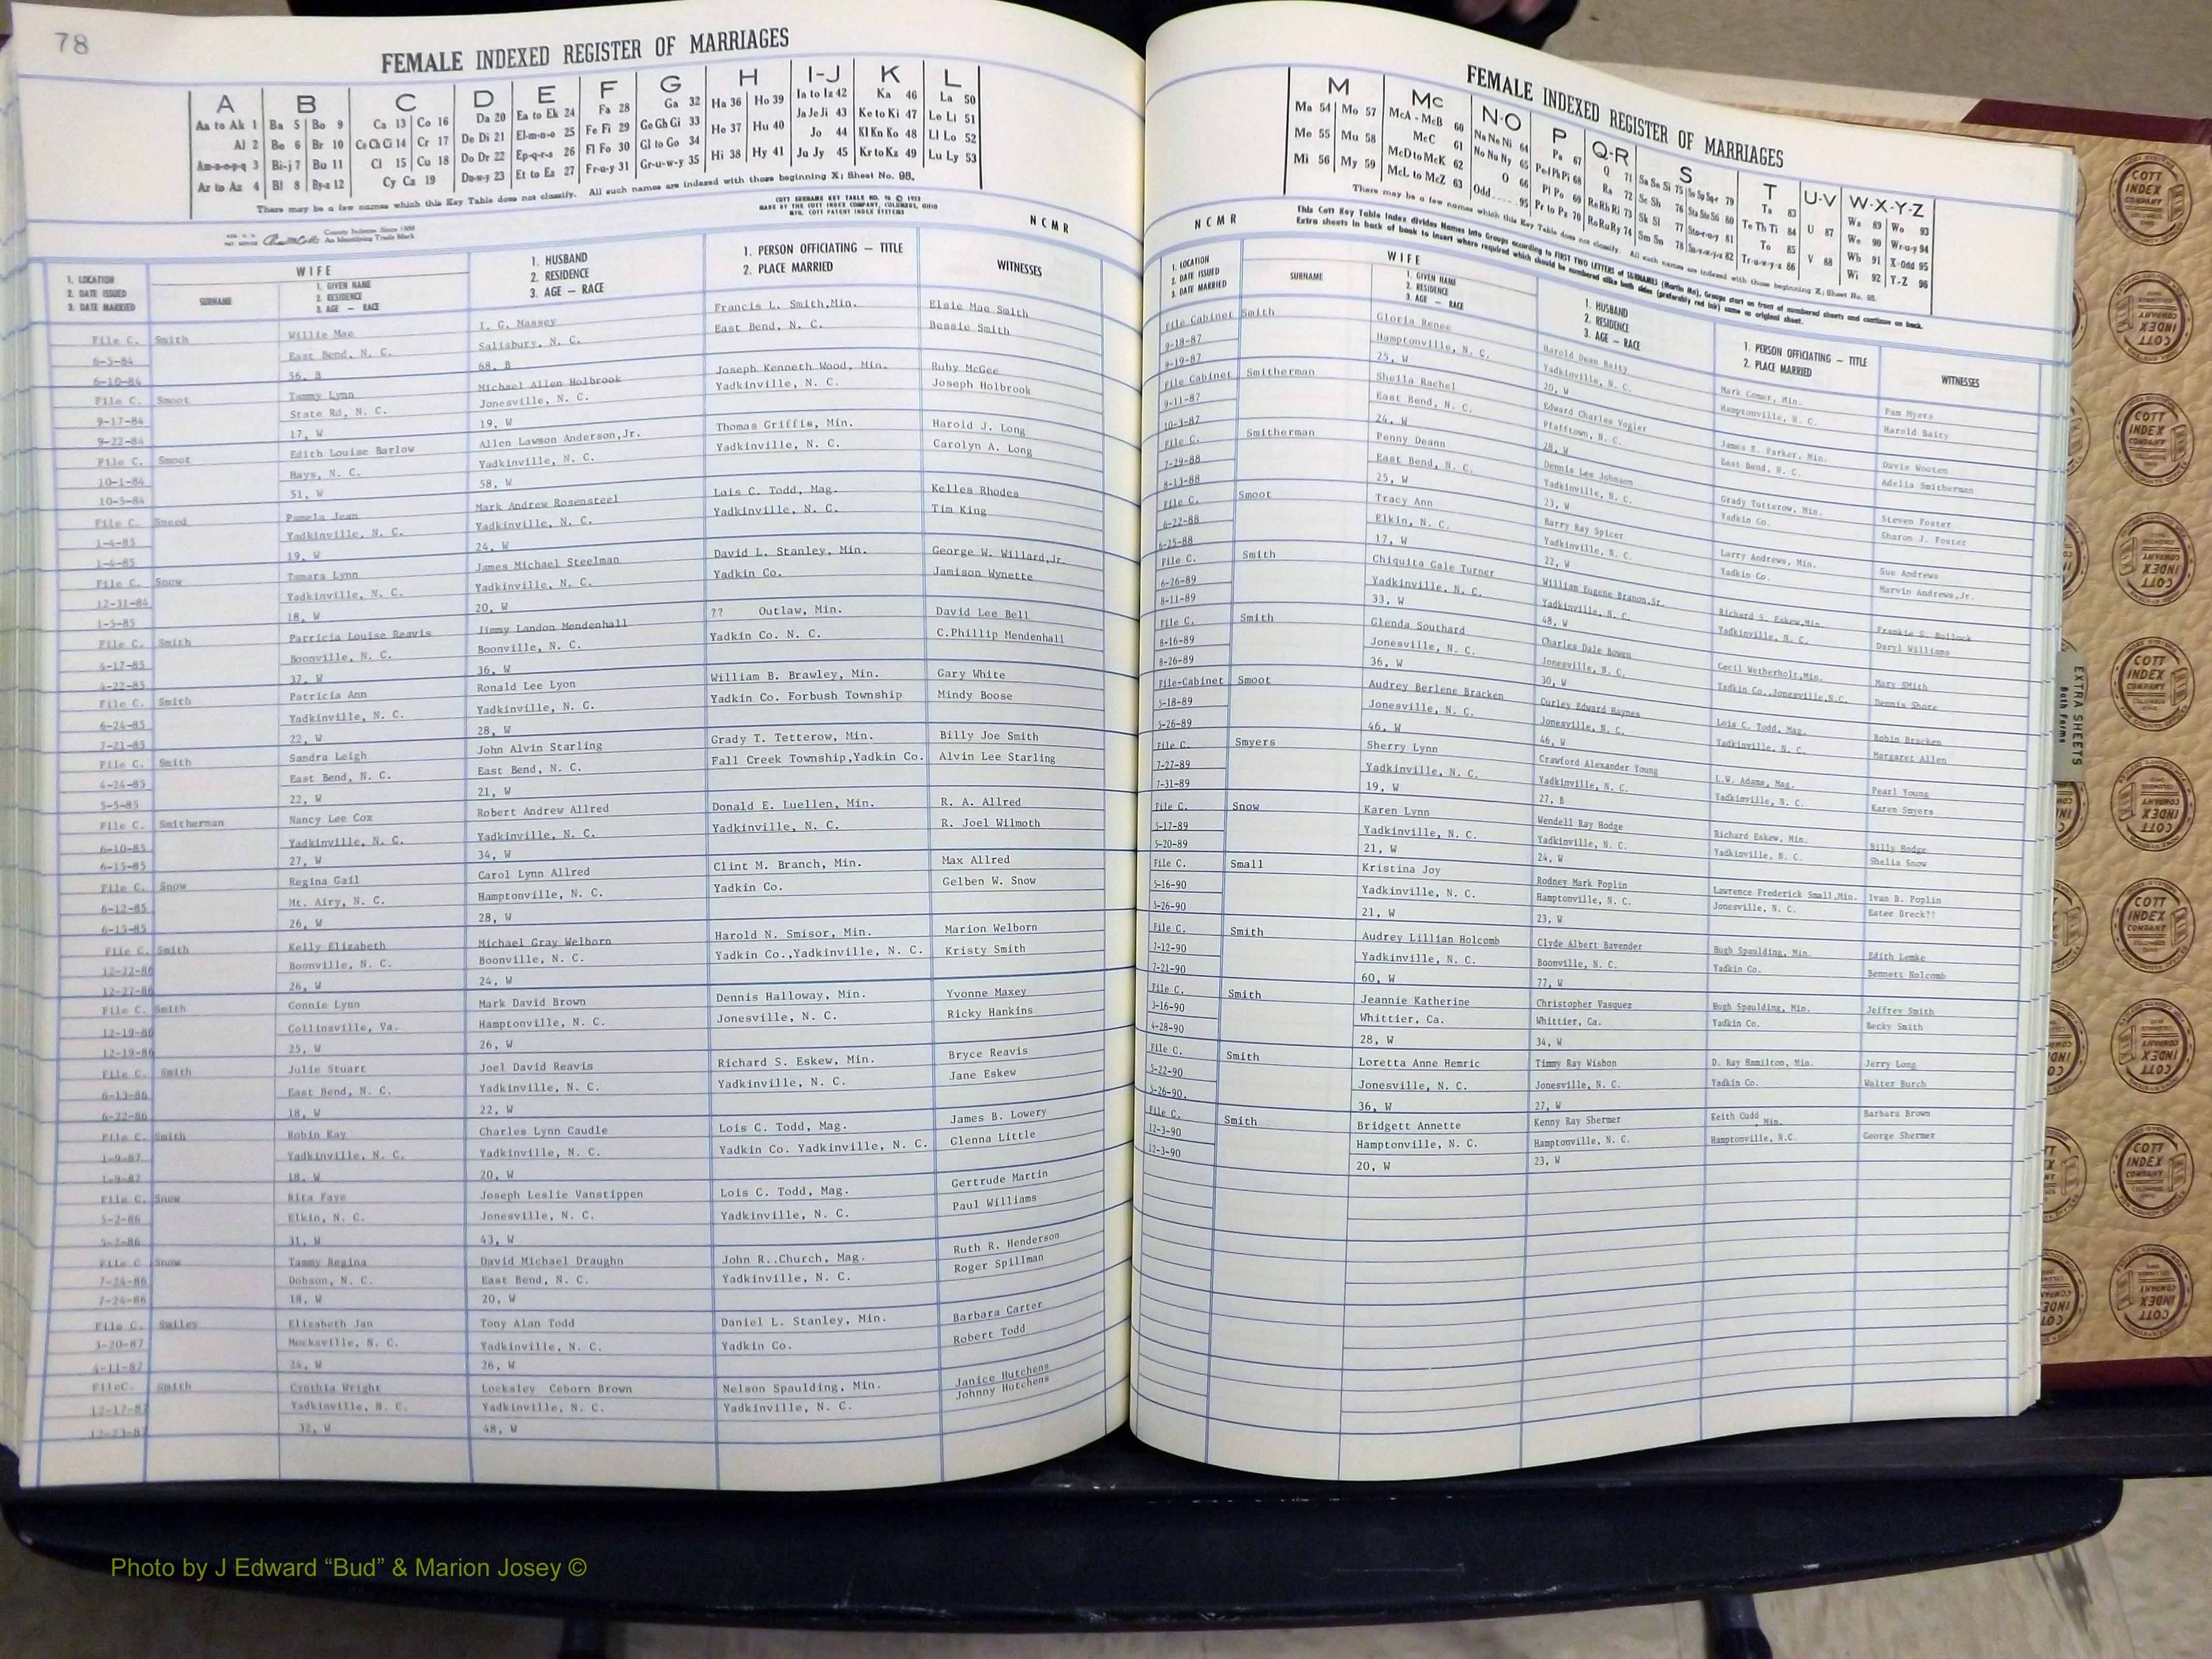 78
FEMALE INDEXED REGISTER OF MARRIAGES
A B C D E F G H I-J K L
Aa to Ak 1 Ba 5 Bo 9 Ca 13 Co 16 Da 20 Ea to Ek 24 Fa 28 Ga 32 Ha 36 Ho 39 Ia to Iz 42 Ka 46 La 50
Al 2 Be 6 Br 10 Ce Ch Ci 14 Cr 17 De Di 21 El-m-n-o 25 Fe Fi 29 Ge Gh Gi 33 He 37 Hu 40 Ja Je Ji 43 Ke to Ki 47 Le Li 51
Am-n-o-p-q 3 Bi-j 7 Bu 11 Cl 15 Cu 18 Do Dr 22 Ep-q-r-s 26 Fl Fo 30 Gl to Go 34 Hi 38 Hy 41 Jo 44 Kl Kn Ko 48 Ll Lo 52
Ar to Az 4 Bl 8 By-z 12 Cy Cz 19 Du-w-y 23 Et to Ez 27 Fr-u-y 31 Gr-u-w-y 35 Ju Jy 45 Kr to Kz 49 Lu Ly 53
There may be a few names which this Key Table does not classify. All such names are indexed with those beginning X; Sheet No. 98.
COTT SURNAME KEY TABLE NO. 96 © 1952
MADE BY THE COTT INDEX COMPANY, COLUMBUS, OHIO
MFG. COTT PATENT INDEX SYSTEMS
County Indexes Since 1888
An Identifying Trade Mark
NCMR
1. LOCATION
2. DATE ISSUED
3. DATE MARRIED
WIFE
SURNAME
1. GIVEN NAME
2. RESIDENCE
3. AGE — RACE
1. HUSBAND
2. RESIDENCE
3. AGE — RACE
1. PERSON OFFICIATING — TITLE
2. PLACE MARRIED
WITNESSES
File C. Smith Willie Mae I. G. Massey Francis L. Smith,Min. Elsie Mae Smith
6-5-84 East Bend, N. C. Salisbury, N. C. East Bend, N. C. Bessie Smith
6-10-84 56, B 68, B
File C. Smoot Tammy Lynn Michael Allen Holbrook Joseph Kenneth Wood, Min. Ruby McGee
9-17-84 State Rd, N. C. Jonesville, N. C. Yadkinville, N. C. Joseph Holbrook
9-22-84 17, W 19, W
File C. Smoot Edith Louise Barlow Allen Lawson Anderson,Jr. Thomas Griffis, Min. Harold J. Long
10-1-84 Hays, N. C. Yadkinville, N. C. Yadkinville, N. C. Carolyn A. Long
10-5-84 51, W 58, W
File C. Sneed Pamela Jean Mark Andrew Rosensteel Lois C. Todd, Mag. Kelles Rhodes
1-4-85 Yadkinville, N. C. Yadkinville, N. C. Yadkinville, N. C. Tim King
1-4-85 19, W 24, W
File C. Snow Tamara Lynn James Michael Steelman David L. Stanley, Min. George W. Willard,Jr.
12-31-84 Yadkinville, N. C. Yadkinville, N. C. Yadkin Co. Jamison Wynette
1-5-85 18, W 20, W
File C. Smith Patricia Louise Reavis Jimmy Landon Mendenhall ?? Outlaw, Min. David Lee Bell
4-17-85 Boonville, N. C. Boonville, N. C. Yadkin Co. N. C. C.Phillip Mendenhall
4-22-85 37, W 36, W
File C. Smith Patricia Ann Ronald Lee Lyon William B. Brawley, Min. Gary White
6-24-85 Yadkinville, N. C. Yadkinville, N. C. Yadkin Co. Forbush Township Mindy Boose
7-21-85 22, W 28, W
File C. Smith Sandra Leigh John Alvin Starling Grady T. Tetterow, Min. Billy Joe Smith
4-24-85 East Bend, N. C. East Bend, N. C. Fall Creek Township,Yadkin Co. Alvin Lee Starling
5-5-85 22, W 21, W
File C. Smitherman Nancy Lee Cox Robert Andrew Allred Donald E. Luellen, Min. R. A. Allred
6-10-85 Yadkinville, N. C. Yadkinville, N. C. Yadkinville, N. C. R. Joel Wilmoth
6-15-85 27, W 34, W
File C. Snow Regina Gail Carol Lynn Allred Clint M. Branch, Min. Max Allred
6-12-85 Mt. Airy, N. C. Hamptonville, N. C. Yadkin Co. Gelben W. Snow
6-15-85 26, W 28, W
File C. Smith Kelly Elizabeth Michael Gray Welborn Harold N. Smisor, Min. Marion Welborn
12-22-86 Boonville, N. C. Boonville, N. C. Yadkin Co.,Yadkinville, N. C. Kristy Smith
12-27-86 26, W 24, W
File C. Smith Connie Lynn Mark David Brown Dennis Halloway, Min. Yvonne Maxey
12-19-86 Collinsville, Va. Hamptonville, N. C. Jonesville, N. C. Ricky Hankins
12-19-86 25, W 26, W
File C. Smith Julie Stuart Joel David Reavis Richard S. Eskew, Min. Bryce Reavis
6-13-86 East Bend, N. C. Yadkinville, N. C. Yadkinville, N. C. Jane Eskew
6-22-86 18, W 22, W
File C. Smith Robin Kay Charles Lynn Caudle Lois C. Todd, Mag. James B. Lowery
1-9-87 Yadkinville, N. C. Yadkinville, N. C. Yadkin Co. Yadkinville, N. C. Glenna Little
1-9-87 18, W 20, W
File C. Snow Rita Faye Joseph Leslie Vanstippen Lois C. Todd, Mag. Gertrude Martin
5-2-86 Elkin, N. C. Jonesville, N. C. Yadkinville, N. C. Paul Williams
5-2-86 31, W 43, W
File C Snow Tammy Regina David Michael Draughn John R..Church, Mag. Ruth R. Henderson
7-24-86 Dobson, N. C. East Bend, N. C. Yadkinville, N. C. Roger Spillman
7-24-86 18, W 20, W
File C. Smiley Elizabeth Jan Tony Alan Todd Daniel L. Stanley, Min. Barbara Carter
3-20-87 Mocksville, N. C. Yadkinville, N. C. Yadkin Co. Robert Todd
4-11-87 24, W 26, W
FileC. Smith Cynthia Wright Locksley Ceborn Brown Nelson Spaulding, Min. Janice Hutchens
12-17-87 Yadkinville, N. C. Yadkinville, N. C. Yadkinville, N. C. Johnny Hutchens
12-23-87 32, W 48, W
FEMALE INDEXED REGISTER OF MARRIAGES
M Mc N-O P Q-R S T U-V W-X-Y-Z
Ma 54 Mo 57 McA - McB 60 Na Ne Ni 64 Pa 67 Q 71 Sa Se Si 75 Sn Sp Sq-r 79 Ta 83 Wa 89 Wo 93
Me 55 Mu 58 McC 61 No Nu Ny 65 Pe-f Ph Pi 68 Ra 72 Sc Sh 76 Sta Ste Sti 80 Te Th Ti 84 U 87 We 90 Wr-u-y 94
Mi 56 My 59 McD to McK 62 O 66 Pl Po 69 Re Rh Ri 73 Sk Sl 77 Sto-r-u-y 81 To 85 Wh 91 X-Odd 95
McL to McZ 63 Odd 95 Pr to Pz 70 Ro Ru Ry 74 Sm Sn 78 Su-v-w-y-z 82 Tr-u-w-y-z 86 V 88 Wi 92 Y-Z 96
There may be a few names which this Key Table does not classify. All such names are indexed with those beginning X; Sheet No. 98.
NCMR
This Cott Key Table Index divides Names into Groups according to FIRST TWO LETTERS of SURNAMES (Martin Ma). Groups start on front of numbered sheets and continue on back.
Extra sheets in back of book to insert where required which should be numbered alike both sides (preferably red ink) same as original sheet.
1. LOCATION
2. DATE ISSUED
3. DATE MARRIED
WIFE
SURNAME
1. GIVEN NAME
2. RESIDENCE
3. AGE — RACE
1. HUSBAND
2. RESIDENCE
3. AGE — RACE
1. PERSON OFFICIATING — TITLE
2. PLACE MARRIED
WITNESSES
File Cabinet Smith Gloria Renee Harold Dean Baity Mark Comer, Min. Pam Myers
9-18-87 Hamptonville, N. C. Yadkinville, N. C. Hamptonville, N. C. Harold Baity
9-19-87 25, W 20, W
File Cabinet Smitherman Sheila Rachel Edward Charles Vogler James E. Parker, Min. Davis Wooten
9-11-87 East Bend, N. C. Pfafftown, N. C. East Bend, N. C. Adelia Smitherman
10-3-87 24, W 28, W
File C. Smitherman Penny Deann Dennis Lee Johnson Grady Tutterow, Min. Steven Foster
7-29-88 East Bend, N. C. Yadkinville, N. C. Yadkin Co. Sharon J. Foster
8-13-88 25, W 23, W
File C. Smoot Tracy Ann Barry Ray Spicer Larry Andrews, Min. Sue Andrews
6-22-88 Elkin, N. C. Yadkinville, N. C. Yadkin Co. Marvin Andrews,Jr.
6-25-88 17, W 22, W
File C. Smith Chiquita Gale Turner William Eugene Branon,Sr. Richard S. Eskew,Min. Frankie S. Bullock
6-26-89 Yadkinville, N. C. Yadkinville, N. C. Yadkinville, N. C. Daryl Williams
8-11-89 33, W 48, W
File C. Smith Glenda Southard Charles Dale Bowen Cecil Wetherholt,Min. Mary SMith
8-16-89 Jonesville, N. C. Jonesville, N. C. Yadkin Co.,Jonesville,N.C. Dennis Shore
8-26-89 36, W 30, W
File-Cabinet Smoot Audrey Berlene Bracken Curley Edward Haynes Lois C. Todd, Mag. Robin Bracken
5-18-89 Jonesville, N. C. Jonesville, N. C. Yadkinville, N. C. Margaret Allen
5-26-89 46, W 46, W
File C. Smyers Sherry Lynn Crawford Alexander Young L.W. Adams, Mag. Pearl Young
7-27-89 Yadkinville, N. C. Yadkinville, N. C. Yadkinville, N. C. Karen Smyers
7-31-89 19, W 27, B
File C. Snow Karen Lynn Wendell Ray Hodge Richard Eskew, Min. Billy Hodge
5-17-89 Yadkinville, N. C. Yadkinville, N. C. Yadkinville, N. C. Shelia Snow
5-20-89 21, W 24, W
File C. Small Kristina Joy Rodney Mark Poplin Lawrence Frederick Small,Min. Ivan B. Poplin
5-16-90 Yadkinville, N. C. Hamptonville, N. C. Jonesville, N. C. Estee Breck??
5-26-90 21, W 23, W
File C. Smith Audrey Lillian Holcomb Clyde Albert Bavender Hugh Spaulding, Min. Edith Lemke
7-12-90 Yadkinville, N. C. Boonville, N. C. Yadkin Co. Bennett Holcomb
7-21-90 60, W 77, W
File C. Smith Jeannie Katherine Christopher Vasquez Hugh Spaulding, Min. Jeffrey Smith
3-16-90 Whittier, Ca. Whittier, Ca. Yadkin Co. Becky Smith
4-28-90 28, W 34, W
File C. Smith Loretta Anne Hemric Timmy Ray Wishon D. Ray Hamilton, Min. Jerry Long
5-22-90 Jonesville, N. C. Jonesville, N. C. Yadkin Co. Walter Burch
5-26-90. 36, W 27, W
File C. Smith Bridgett Annette Kenny Ray Shermer Keith Cudd Min. Barbara Brown
12-3-90 Hamptonville, N. C. Hamptonville, N. C. Hamptonville, N.C. George Shermer
12-3-90 20, W 23, W
EXTRA SHEETS
Both Forms
COTT INDEX COMPANY
Photo by J Edward “Bud” & Marion Josey ©